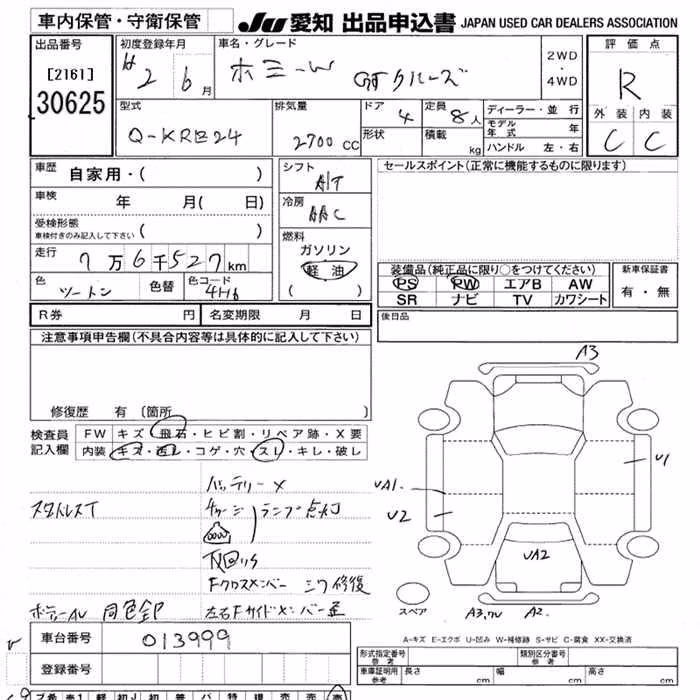 車内保管・守衛保管 JU愛知 出品申込書 JAPAN USED CAR DEALERS ASSOCIATION
出品番号
[2161]
30625
初度登録年月
H2 6月
車名・グレード
ホミーW GTクルーズ
2WD
・
4WD
評価点
R
外装 内装
C C
型式
Q-KRE24
排気量
2700 CC
ドア 4
形状
定員 8人
積載 kg
ディーラー・並行
モデル年式 年
ハンドル 左・右
車歴 自家用・( )
車検 年 月( 日)
受検形態
車検付きのみ記入して下さい ( )
走行 7万6千527km
色 ツートン
色替
色コード 4H6
シフト
A/T
冷房
AAC
燃料
ガソリン
軽油
( )
セールスポイント(正常に機能するものに限ります)
装備品(純正品に限り○をつけてください)
PS PW エアB AW
SR ナビ TV カワシート
新車保証書
有・無
後日品
R券 円 名変期限 月 日
注意事項申告欄(不具合内容等は具体的に記入して下さい)
修復歴 有 〔箇所 〕
検査員記入欄
FW キズ・飛石・ヒビ割・リペア跡・X要
内装 キズ・汚レ・コゲ・穴・スレ・キレ・破レ
バッテリー×
スタットレスT
チャージ ランプ点灯
下回りサ
Fクロスメンバー ミワ修復
左右Fサイドメンバー歪
A3
U1
UA1.
U2
UA2
スペア
A2.
A-キズ E-エクボ U-凹み W-補修跡 S-サビ C-腐食 XX-交換済
車台番号 013999
登録番号
形式指定番号
参考
類別区分番号
参考
車庫証明用
参考
長さ cm 幅 cm 高さ cm